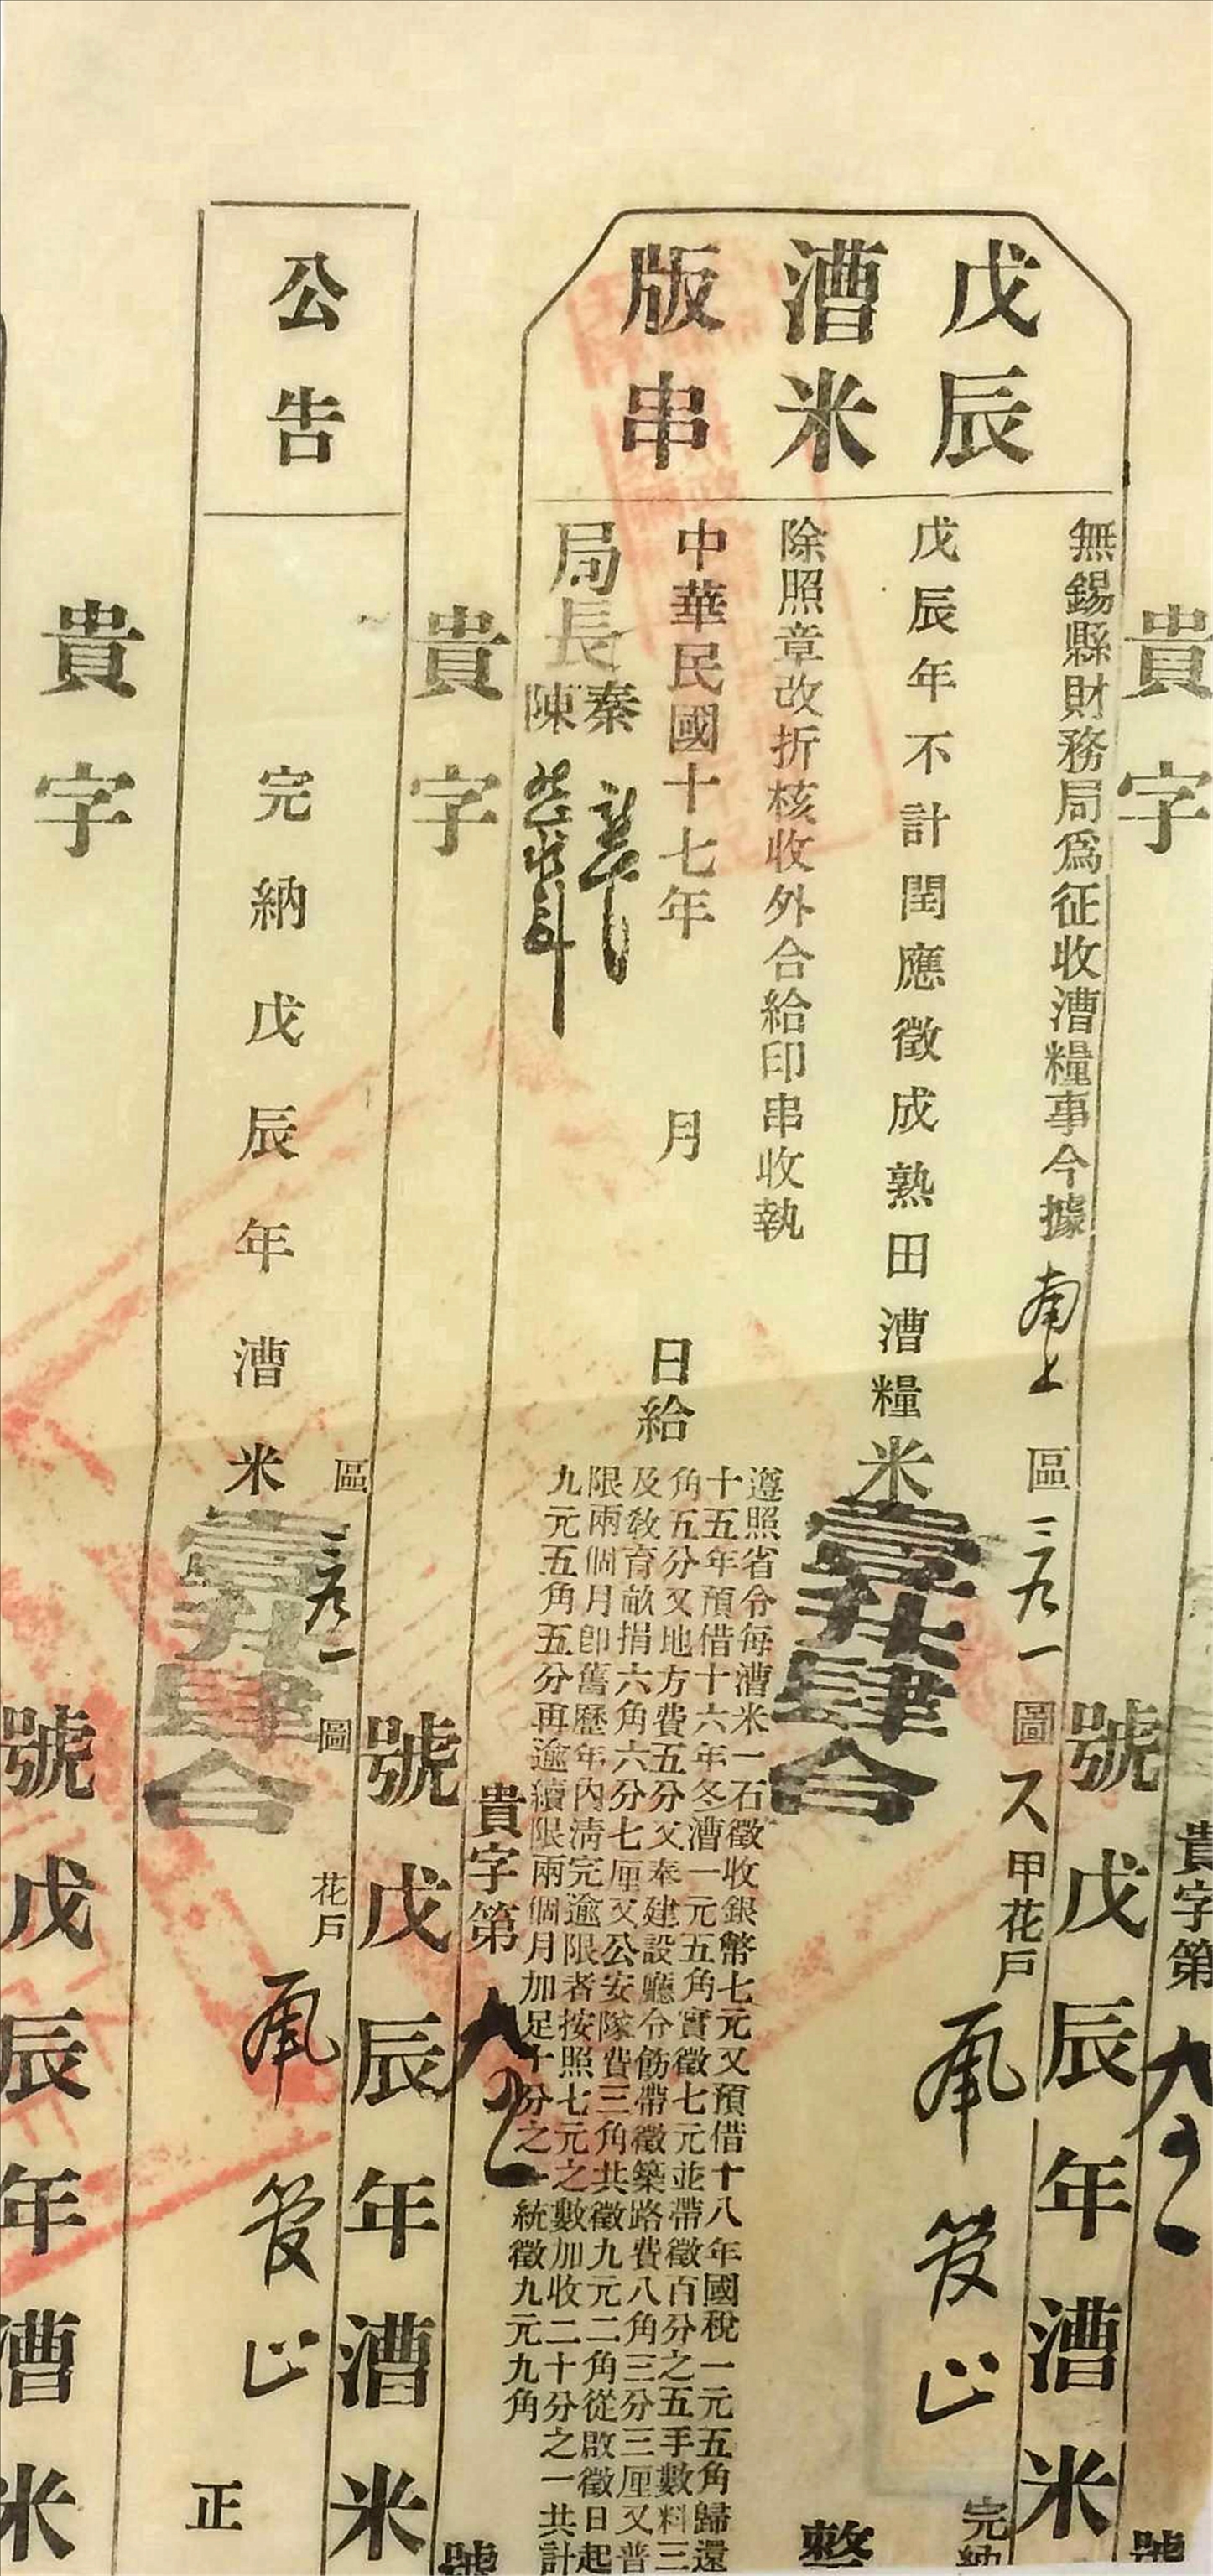 貴字
號戊辰年漕米
貴字第
號
戊辰
漕米
版串
無錫縣財務局爲征收漕糧事今據
區三九一圖
甲花戶
完納
戊辰年不計閏應徵成熟田漕糧米壹升肆合
整
除照章改折核收外合給印串收執
中華民國十七年 月 日給
局長秦
陳
遵照省令每漕米一石徵收銀幣七元又預借十八年國稅一元五角歸還
十五年預借十六年冬漕一元五角實徵七元並帶徵百分之五手數料三
角五分又地方費五分又奉建設廳令飭帶徵築路費八角三分三厘又普
及教育畝捐六角六分七厘又公安隊費三角共徵九元二角從啟徵日起
限兩個月卽舊歷年內清完逾限者按照七元之數加收二十分之一共計
九元五角五分再逾續限兩個月加足十分之一統徵九元九角
貴字第
號
貴字
號戊辰年漕米
公告
區三九一圖
花戶
完納戊辰年漕米壹升肆合
正
貴字
號戊辰年漕米